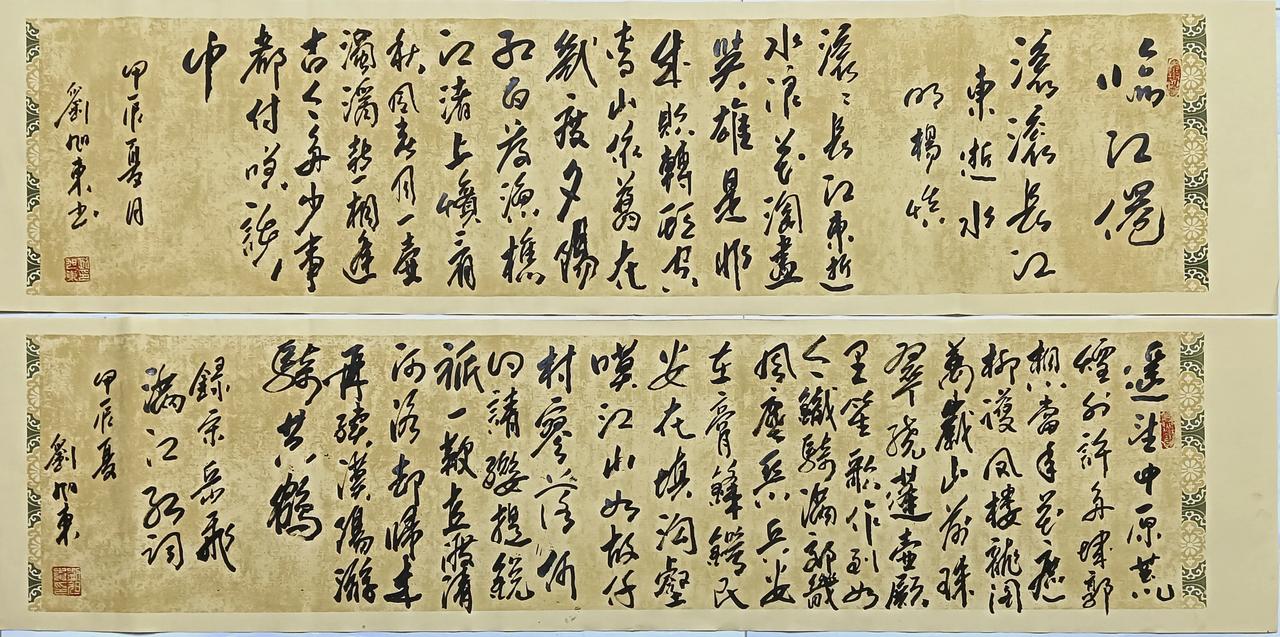 臨江僊
滚滚長江
東逝水
明楊慎
滚〻長江東逝
水浪花淘盡
英雄是非
成敗轉頭空
青山依舊在
幾度夕陽
紅白髮漁樵
江渚上慣看
秋風春月一壺
濁酒喜相逢
古今多少事
都付笑談
中
甲辰夏月
劉旭東书
遥望中原荒
煙外許多城郭
想當年花遮
柳護鳳樓龍閣
萬歲山前珠
翠繞蓬壺殿
里笙歌作到如
今鐵騎滿郊畿
風塵惡兵安
在膏鋒鍔民
安在填溝壑
嘆江山如故千
村寥落何
日請纓提銳
旅一鞭直渡清
河洛却歸來
再續漢陽遊
騎黄鶴
録宋岳飛
滿江紅詞
甲辰夏
劉旭東